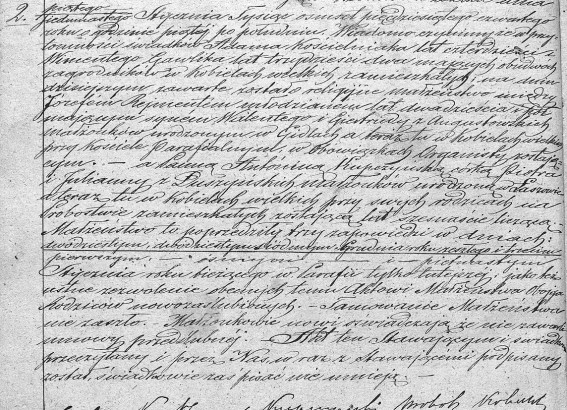 piętnastego
2. jedenastego Stycznia Tysiąc osmset pięćdziesiątego czwartego
roku o godzinie piątej po południu. Wiadomo czynimy że w przy
tomności świadków Adama Kościelniaka lat czterdzieści i
Wincentego Gawlika lat trzydzieści dwa mających obudwoch
zagrodników w Kobielach wielkich zamieszkałych, na dniu
dzisiejszym zawarte zostało religijne małżeństwo między
Józefem Rejmentem młodzianem lat dwadzieścia
mającym synem Walentego i Gertrudy z Augustowskich
małżonków urodzonym w Gidlach a teraz tu w Kobielach wielkich
przy kościele Parafialnym w obowiązkach Organisty zostają-
cym. — a Panną Antoniną Kupczyńską córką Piotra
i Julianny z małżonków urodzoną w
a teraz tu w Kobielach wielkich przy swych rodzicach na
probostwie zamieszkałych zostającą lat szesnaście liczącą.
Małżeństwo to poprzedziły trzy zapowiedzi w dniach:
Grudnia roku zeszłego
pierwszym — ósmym — i — piętnastym
Stycznia roku bieżącego w Parafii tylko tutejszej; jako też
ustne zezwolenie obecnych temu Aktowi Małżeństwa Obojga
Rodziców nowozaślubionych. — Tamowanie Małżeństwa
nie zaszło. Małżonkowie nowi oświadczają że nie zawarli
umowy przedślubnej. Akt ten Stawającym i świadkom
przeczytany i przez Nas wraz z Stawającemi podpisany
został, świadkowie zaś pisać nie umieją —